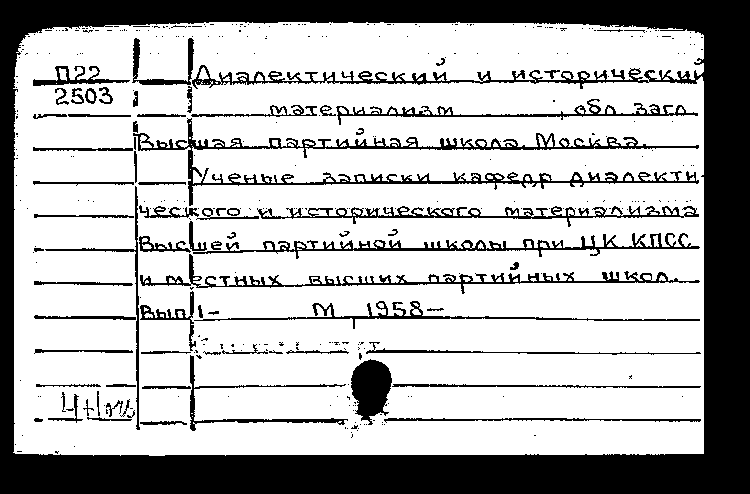 П22
2503
Диалектический и исторический
материализм , обл загл
Высшая партийная школа. Москва.
Ученые записки кафедр диалекти-
ческого и исторического материализма
Высшей партийной школы при ЦК КПСС
и местных высших партийных школ.
Вып 1- М 1958-